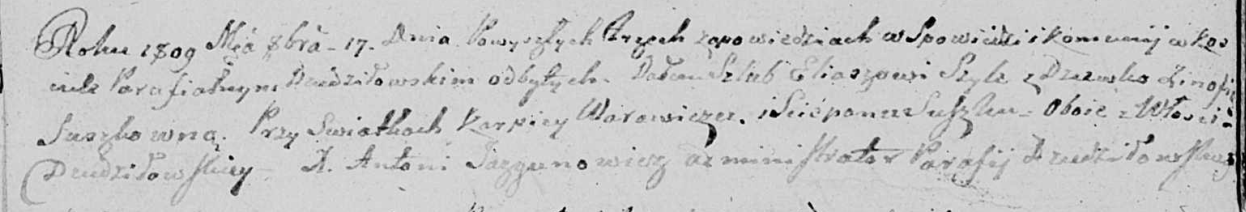 Roku 1809 Mca 8bra 17. Dnia Powyszłych Trzech zapowiedziach w Spowiedzi i komunij w kos
ciele Parafialnym Dziedziłowskim odbytych. Dałem Szlub Eliaszowi Szyle z Dziewko Zinofią
Suszkowną. Przy Swiatkach Karpiey Warawiczer. i Sciepanu Suszku. Oboie z Włości
Dziedziłowskiey X. Antoni Jazgunowicz administrator Parafij Dziedziłowskiey